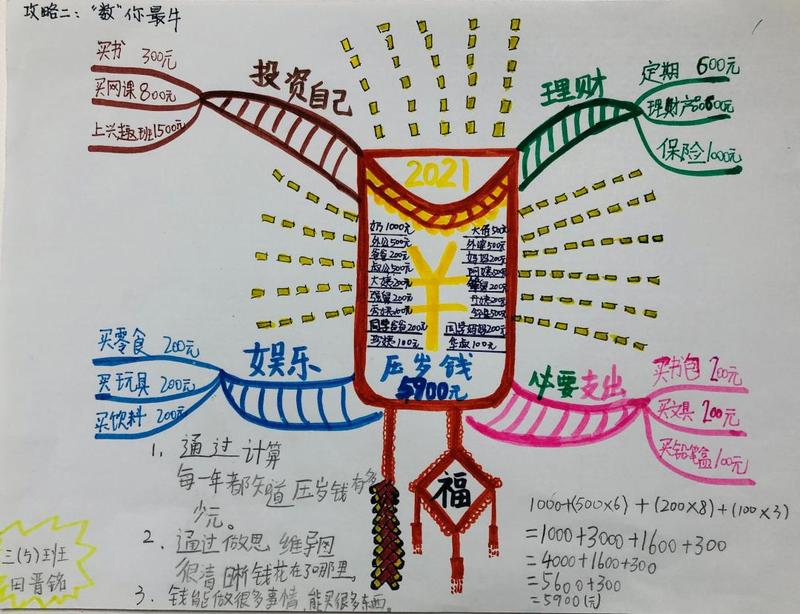 攻略二："数"你最牛
投资自己
买书 300元
买网课800元
上兴趣班1500元
理财
定期 600元
理财产品600元
保险1000元
2021
奶1000元
外公500元
爸爸200元
叔公500元
大姨200元
同学爸爸200元
100元
大伯500元
外婆500元
妈妈200元
同学妈妈200元
100元
¥
压岁钱
5900元
娱乐
买零食 200元
买玩具 200元
买饮料 200元
必要支出
买书包 200元
买文具 200元
买铅笔盒100元
福
1、通过计算
每一年都知道压岁钱有多
少元。
2、通过做思维导图
很清晰钱花在了哪里。
3、钱能做很多事情,能买很多东西。
三(5)班
田晋铭
1000+(500×6)+(200×8)+(100×3)
=1000+3000+1600+300
=4000+1600+300
=5600+300
=5900(元)